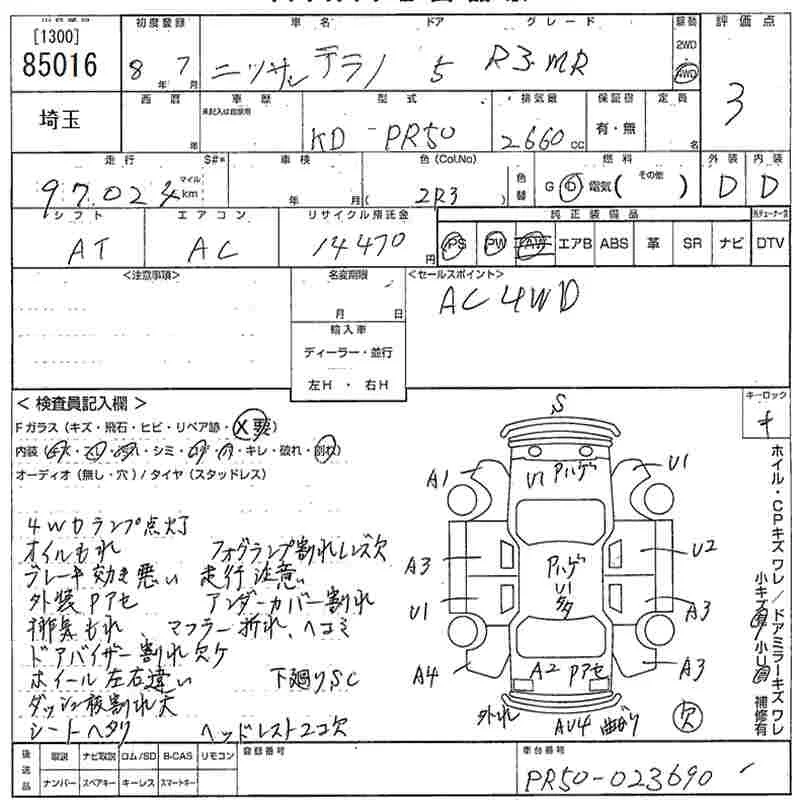 [1300]
85016
埼玉
初度登録
8年 7月
車名
ニッサン テラノ
ドア
5
グレード
R3.MR
駆動
2WD
4WD
評価点
3
西暦
年
車歴
未記入は自家用
型式
KD-PR50
排気量
2660cc
保証書
有・無
定員
名
走行
97.024
マイル
km
S#*
車検
年 月
色(Col.No)
( 2R3 )
色替
燃料
G D 電気( その他 )
外装
D
内装
D
シフト
AT
エアコン
AC
リサイクル預託金
14470円
純正装備品
PS PW AW エアB ABS 革 SR ナビ DTV
<注意事項>
名変期限
月 日
輸入車
ディーラー・並行
左H ・ 右H
<セールスポイント>
AC 4WD
<検査員記入欄>
Fガラス(キズ・飛石・ヒビ・リペア跡・X要)
・シミ・ ・キレ・破れ・
オーディオ(無し・穴)/タイヤ(スタッドレス)
4WDランプ点灯
オイルもれ フォグランプ割れレンズ欠
ブレーキ効き悪い 走行注意
外装Pアセ アンダーカバー割れ
排気もれ、マフラー折れ、ヘコミ
ドアバイザー割れ欠ケ
ホイール左右違い 下廻りSC
ダッシュ板割れ大
シートヘタリ ヘッドレスト2コ欠
キーロック
キ
S
A1
U1
U1 Pハゲ
A3
U2
Pハゲ
U1
多
U1
A3
A4
A2 Pアセ
A3
外れ
AU4 曲がり
欠
ホイル・CPキズワレ/ドアミラーキズワレ
補修有
後送品
取説 ナビ取説 ロム/SD B-CAS リモコン
ナンバー スペアキー キーレス スマートキー
登録番号
車台番号
PR50-023690